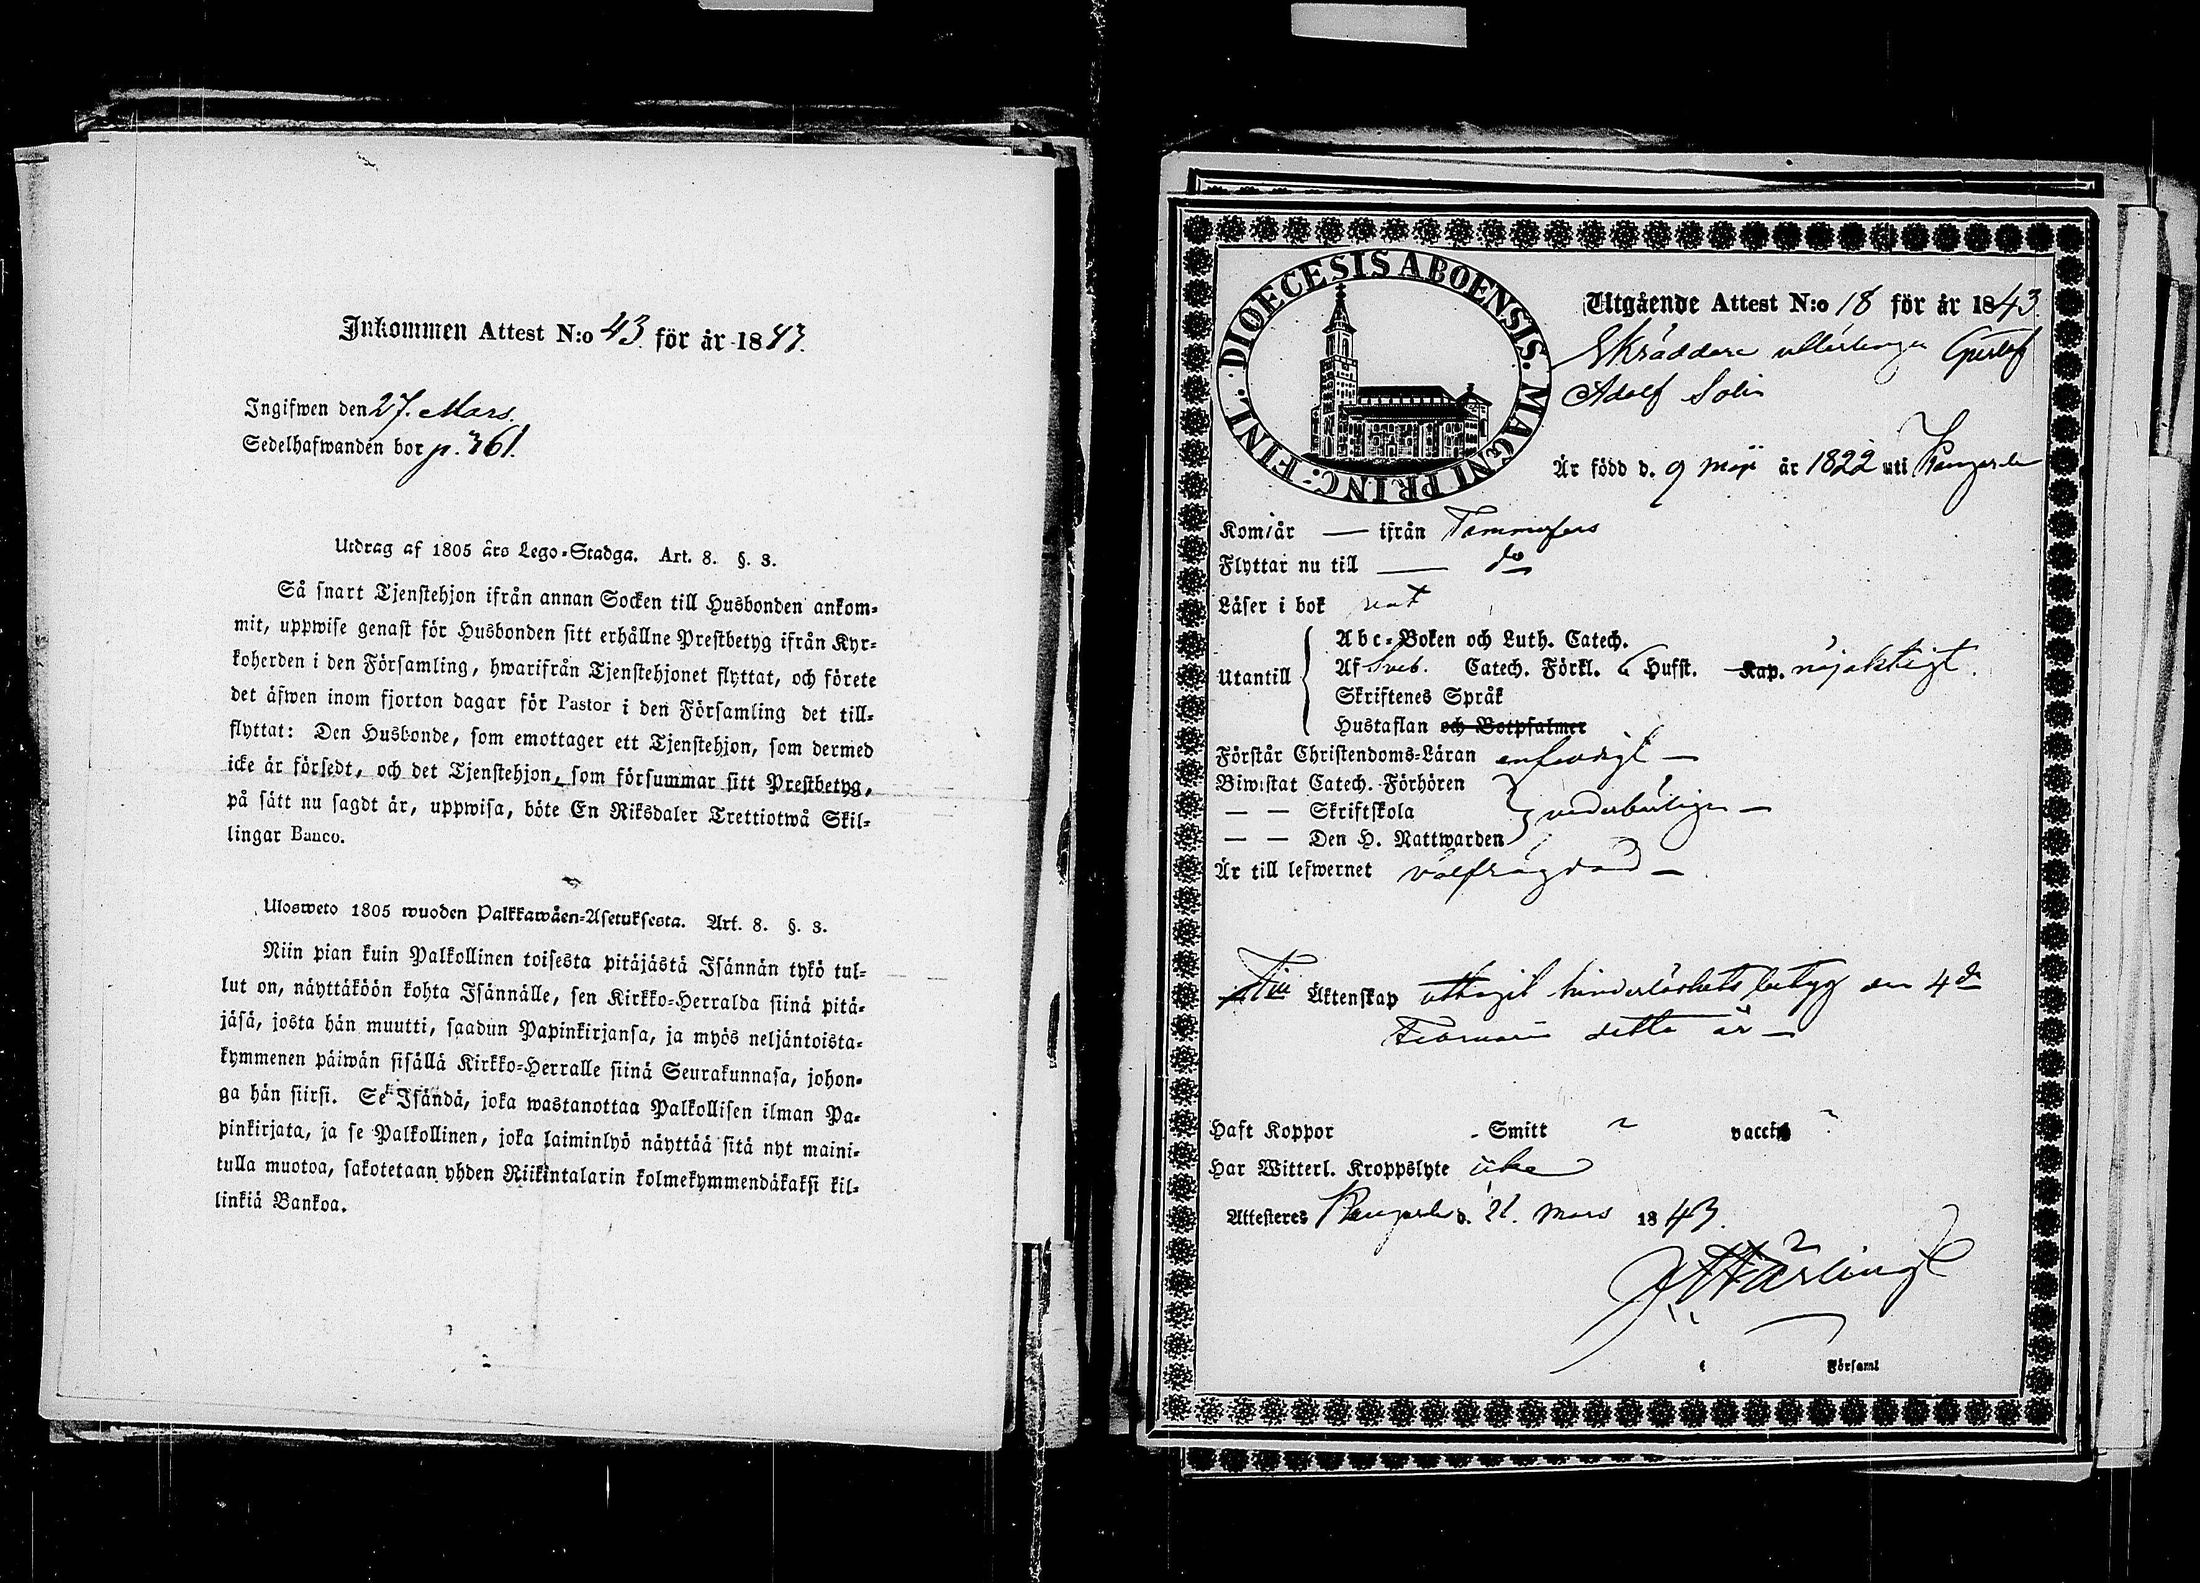 Inkommen Attest N:o 43 för år 1843.
Ingifwen den 27. Mars
Sedelhafwanden bor p. 361.
Utdrag af 1805 års Lego-Stadga. Art. 8. §. 3.
Så snart Tjenstehjon ifrån annan Socken till Husbonden ankom-
mit, uppwise genast för Husbonden sitt erhållne Prestbetyg ifrån Kyr-
koherden i den Församling, hwarifrån Tjenstehjonet flyttat, och förete
det äfwen inom fjorton dagar för Pastor i den Församling det till-
flyttat: Den Husbonde, som emottager ett Tjenstehjon, som dermed
icke är försedt, och det Tjenstehjon, som försummar sitt Prestbetyg,
på sätt nu sagdt är, uppwisa, böte En Riksdaler Trettiotwå Skil-
lingar Banco.
Ulosweto 1805 wuoden Palkkawäen-Asetuksesta. Art. 8. §. 3.
Niin pian kuin Palkollinen toisesta pitäjästä Isännän tykö tul-
lut on, näyttäköön kohta Isännälle, sen Kirkko-Herralda siinä pitä-
jäsä, josta hän muutti, saadun Papinkirjansa, ja myös neljäntoista-
kymmenen päiwän sisällä Kirkko-Herralle siinä Seurakunnasa, johon-
ga hän siirsi. Se Isändä, joka wastanottaa Palkollisen ilman Pa-
pinkirjata, ja se Palkollinen, joka laiminlyö näyttää sitä nyt maini-
tulla muotoa, sakotetaan yhden Riikintalarin kolmekymmendäkaksi kil-
linkiä Bankoa.
DIOECESIS ABOENSIS. MAGNI PRINC: FINL.
Utgående Attest N:o 18 för år 1843.
Skräddare Gustaf
Adolf Solin
Är född d. 9 maji år 1822 uti Kangasala
Kom är — ifrån Tammerfors
Flyttar nu till — do
Läser i bok rent
Utantill
Abc-Boken och Luth. Catech.
Af Sveb. Catech. Förkl. 6 Hufst. Kap. nöjaktigt.
Skriftenes Språk
Hustaflan och Botpsalmer
Förstår Christendoms-Läran enfaldigt —
Biwistat Catech. Förhören
— — Skriftskola vederbörligen —
— — Den H. Nattwarden
Är till lefwernet välfrägdad —
Till Äktenskap uttagit hinderlöshets betyg den 4de
Februarii detta år —
Haft Koppor - Smitt vaccin
Har Witterl. Kroppslyte icke
Attesteres Kangasala d. 21. Mars 1843.
i Församl